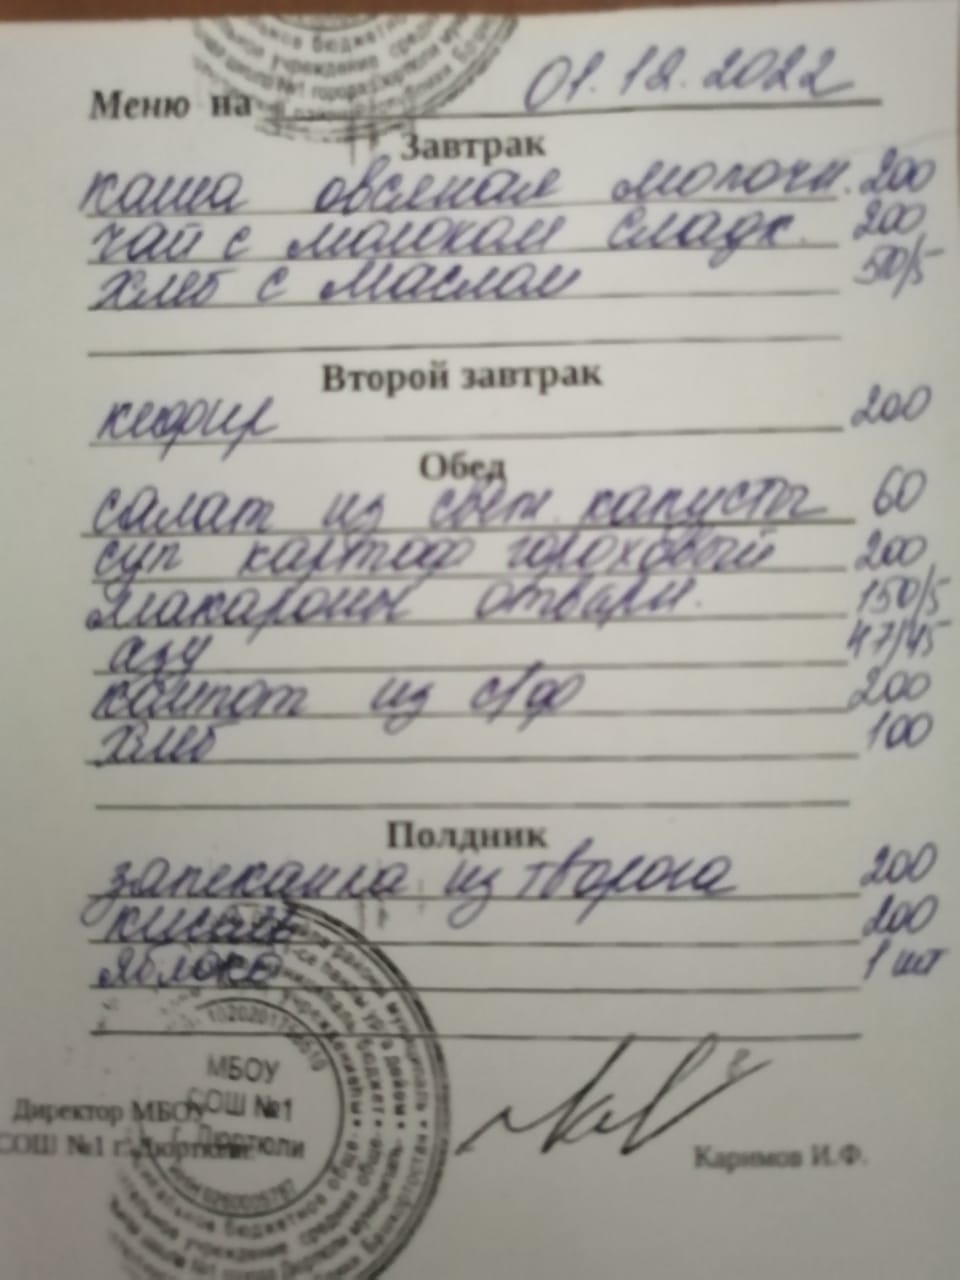 Меню на 01.12.2022
Завтрак
каша овсяная молочн. 200
чай с молоком сладк. 200
хлеб с маслом 50/5
Второй завтрак
кефир 200
Обед
салат из свеж. капусты 60
суп картоф гороховый 200
макароны отварн. 150/5
азу 47/45
компот из с/ф 200
хлеб 100
Полдник
запеканка из творога 200
кисель 200
яблоко 1 шт
МБОУ
СОШ №1
г. Дюртюли
Директор МБОУ
СОШ №1 г. Дюртюли
Каримов И.Ф.